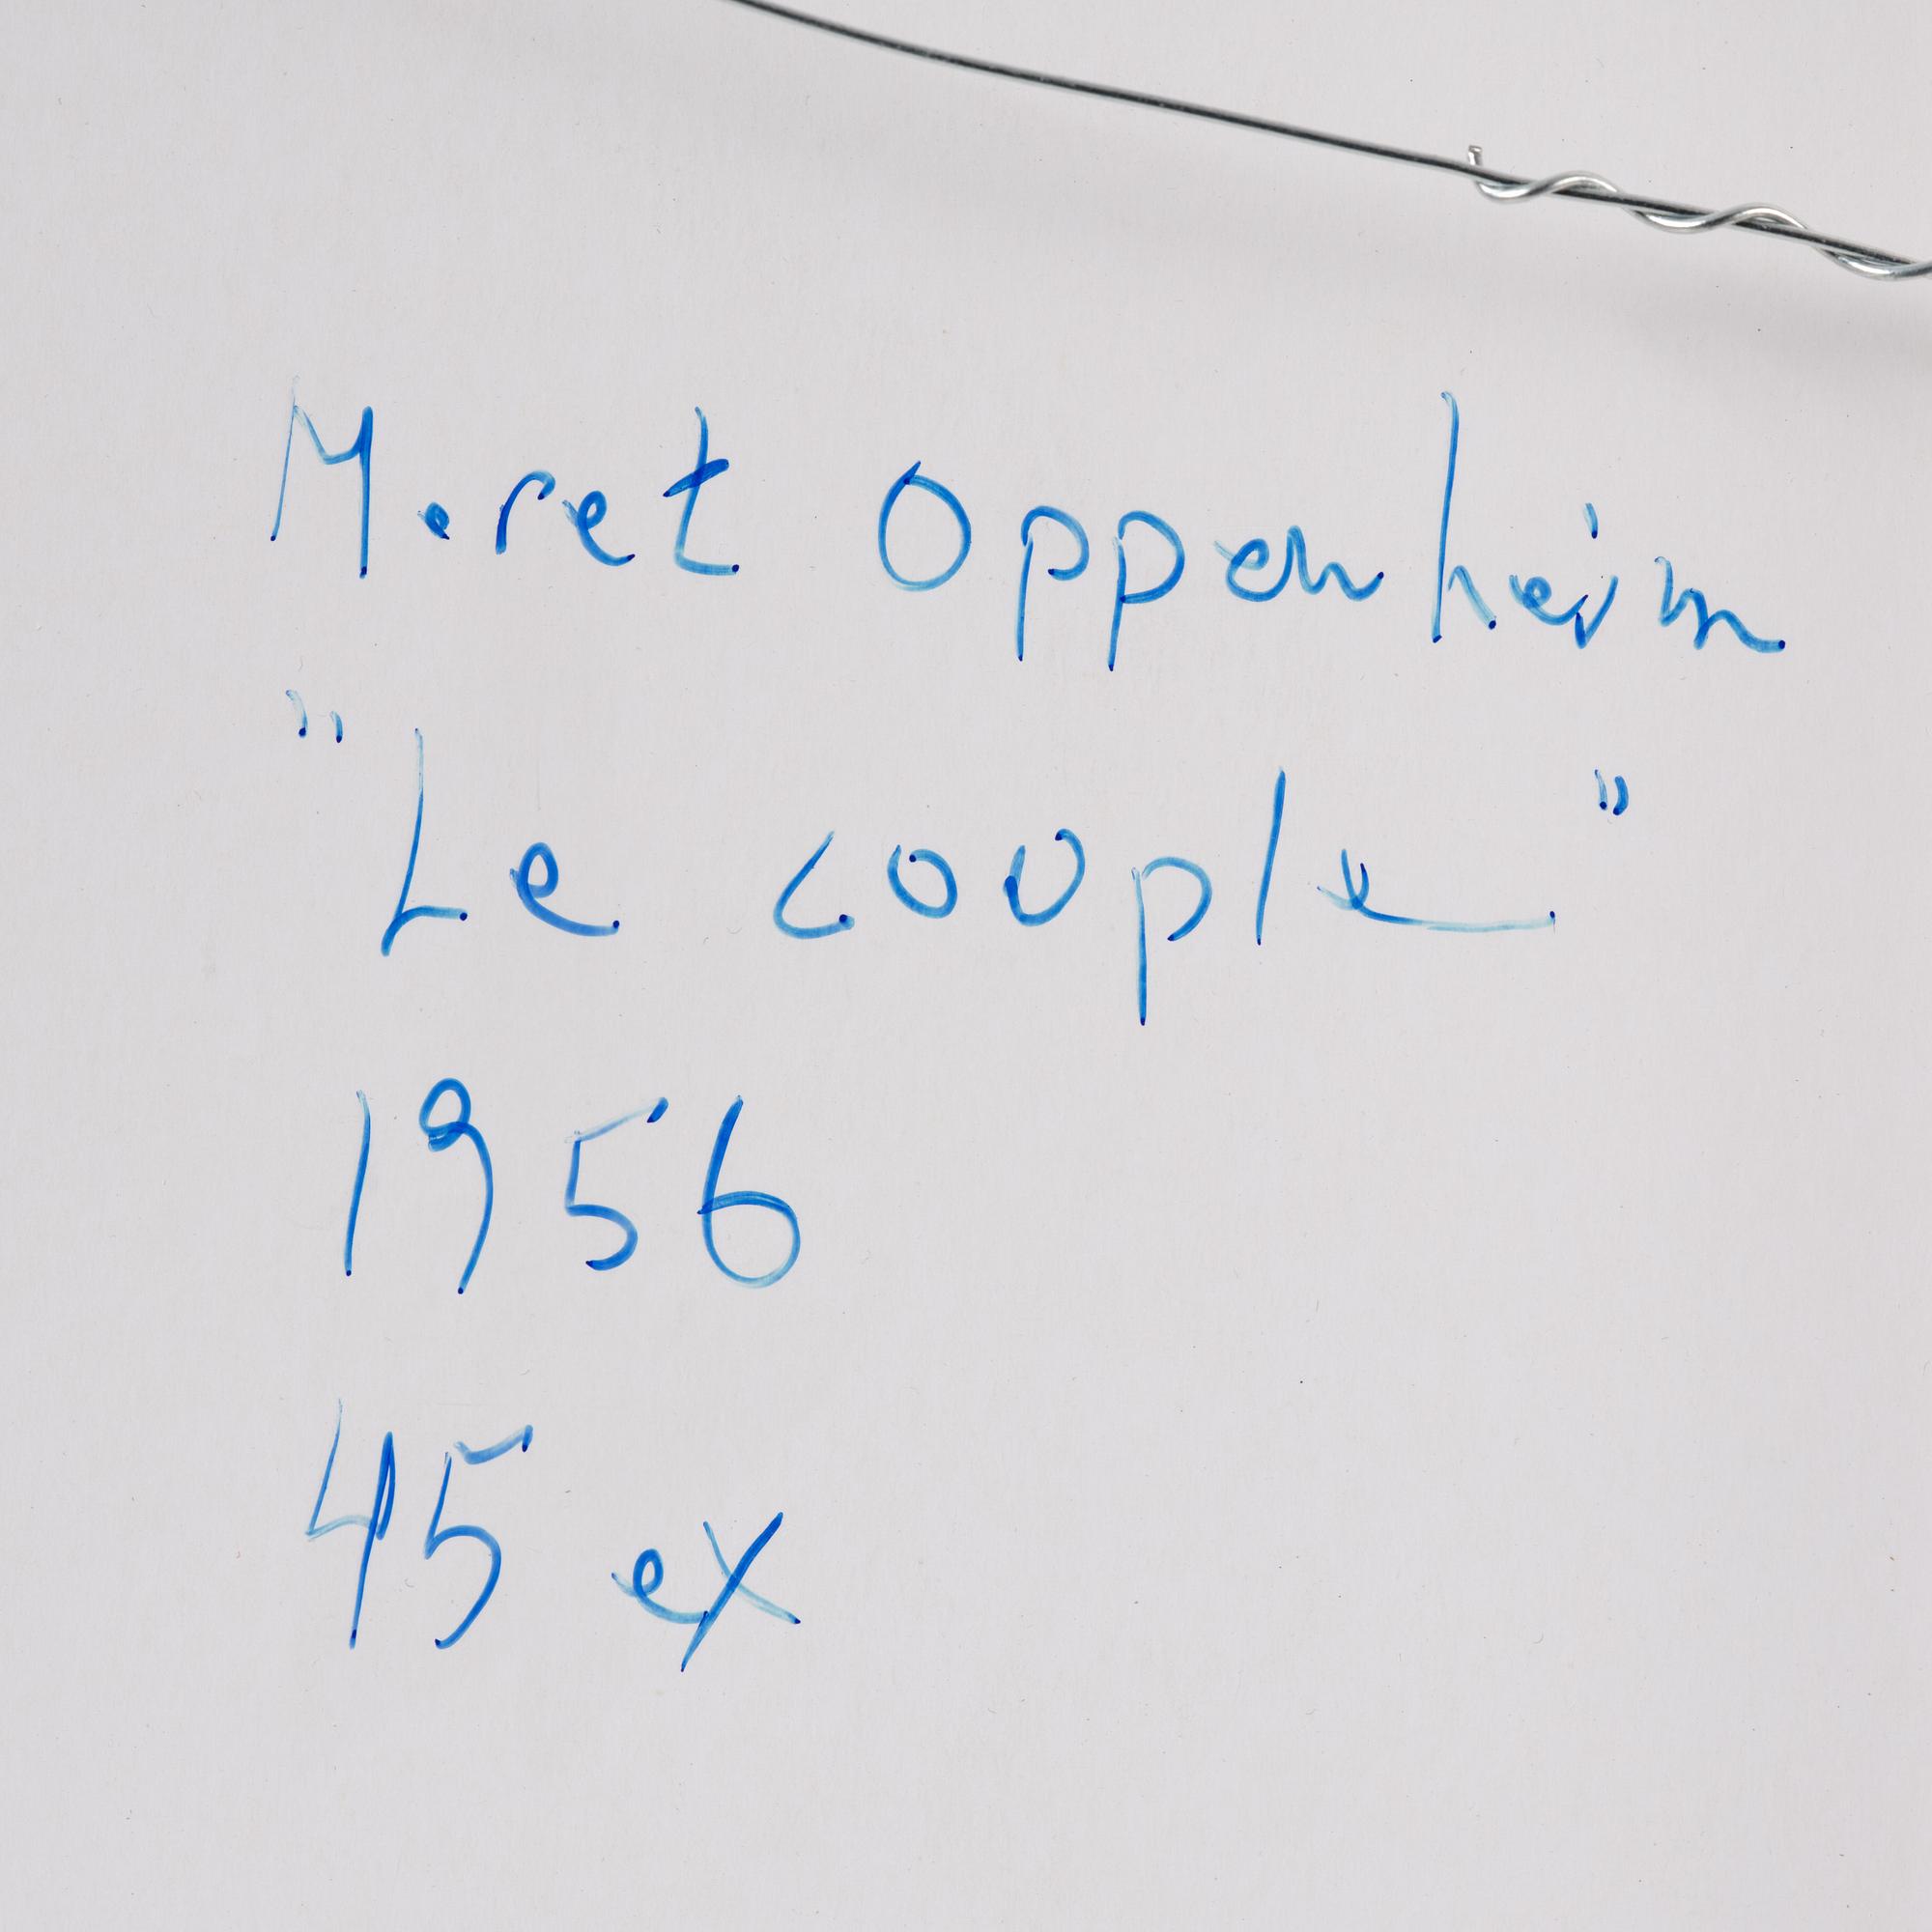 Meret Oppenheim
"Le couple"
1956
45 ex